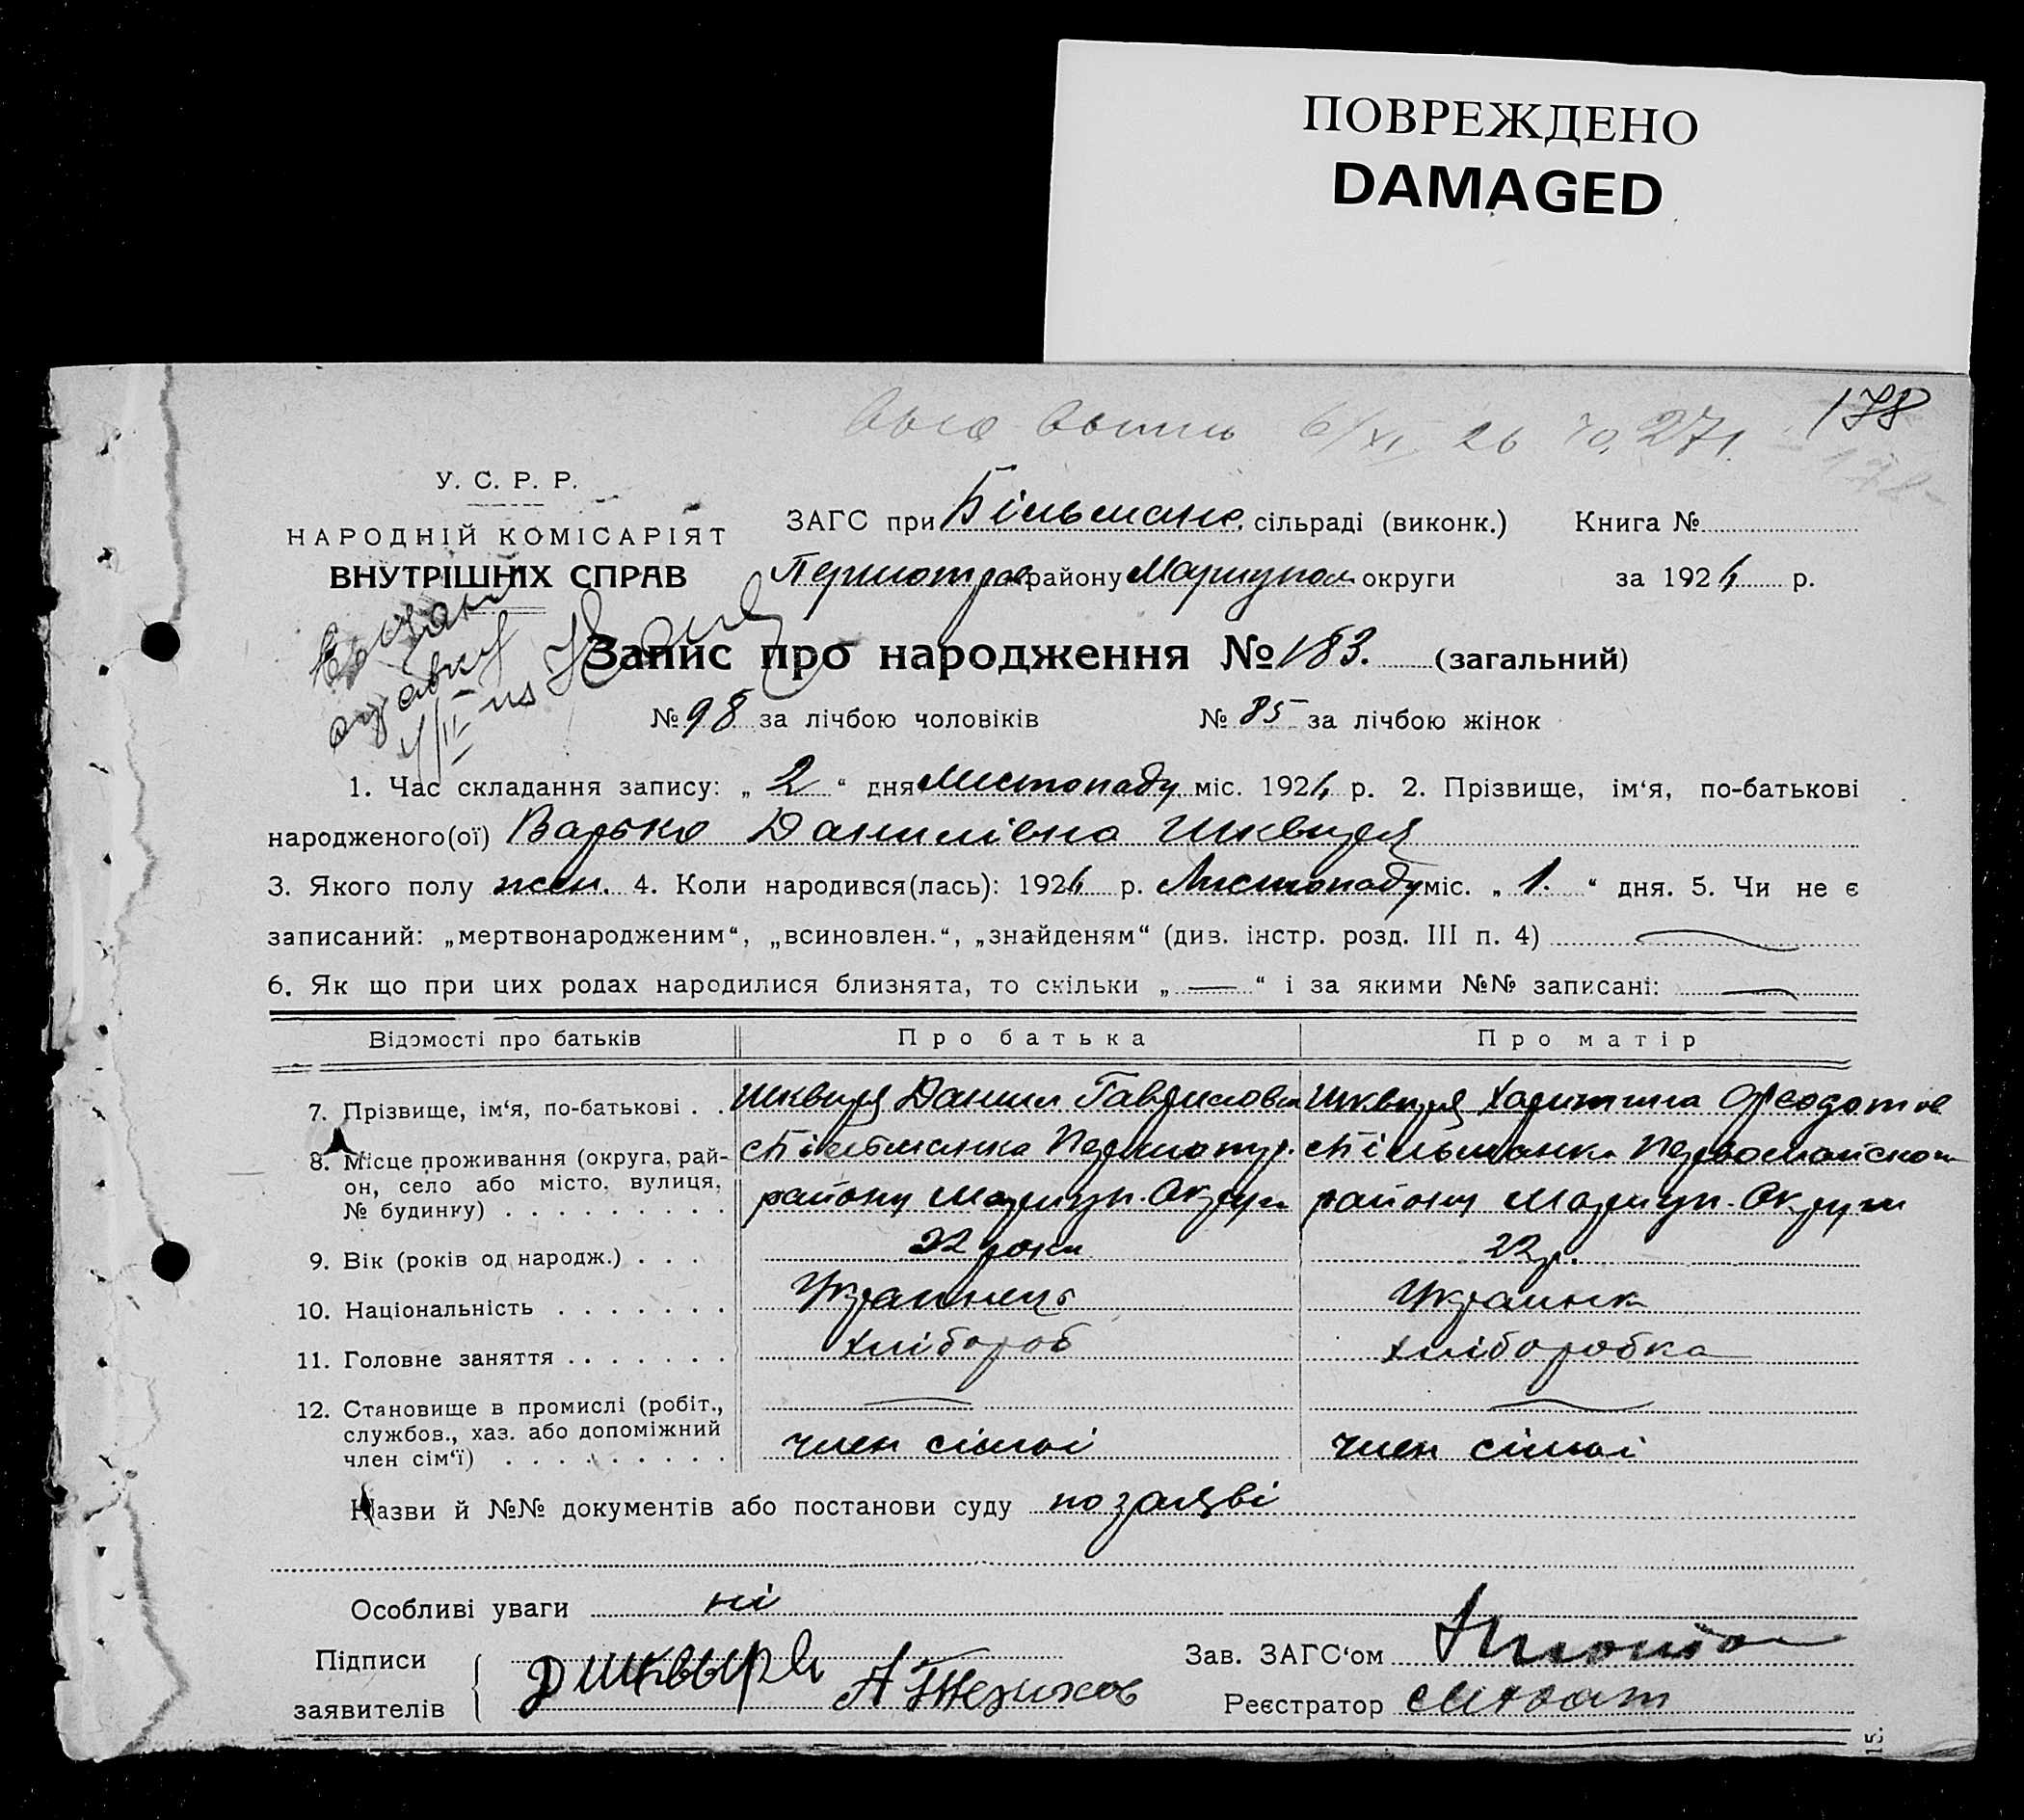 ПОВРЕЖДЕНО
DAMAGED
178
6/XI 26 271.
У. С. Р. Р.
НАРОДНІЙ КОМІСАРІЯТ
ВНУТРІШНІХ СПРАВ
ЗАГС при Більманс. сільраді (виконк.) Книга №
району Мариупол округи за 1926 р.
Запис про народження № 183. (загальний)
№ 98 за лічбою чоловіків № 85 за лічбою жінок
1. Час складання запису: „ 2 “ дня Листопаду міс. 1926 р. 2. Прізвище, ім‘я, по-батькові
народженого(ої) Варька Данилівна Шквиря
3. Якого полу жен. 4. Коли народився(лась): 1926 р. Листопаду міс. „ 1. “ дня. 5. Чи не є
записаний: „мертвонародженим“, „всиновлен.“, „знайденям“ (див. інстр. розд. III п. 4)
6. Як що при цих родах народилися близнята, то скільки „ — “ і за якими №№ записані:
Відомості про батьків Про батька Про матір
7. Прізвище, ім‘я, по-батькові . . Шквиря Данил Гаврилович Шквиря Харитина
8. Місце проживання (округа, рай-
он, село або місто, вулиця,
№ будинку) . . . . . . . . .
с Більманка с Більманка
району Мариуп. Округи району Мариуп. Округи
9. Вік (років од народж.) . . . 22 роки 22 р.
10. Національність . . . . . . . Украинець Украинка
11. Головне заняття . . . . . . . хлібороб хліборобка
12. Становище в промислі (робіт.,
службов., хаз. або допоміжний
член сім‘ї) . . . . . . . . .
член сімьі член сімьі
Назви й №№ документів або постанови суду по заяві
Особливі уваги ні
Підписи
заявителів
Д Шквыря
Зав. ЗАГС‘ом
Реєстратор
15.